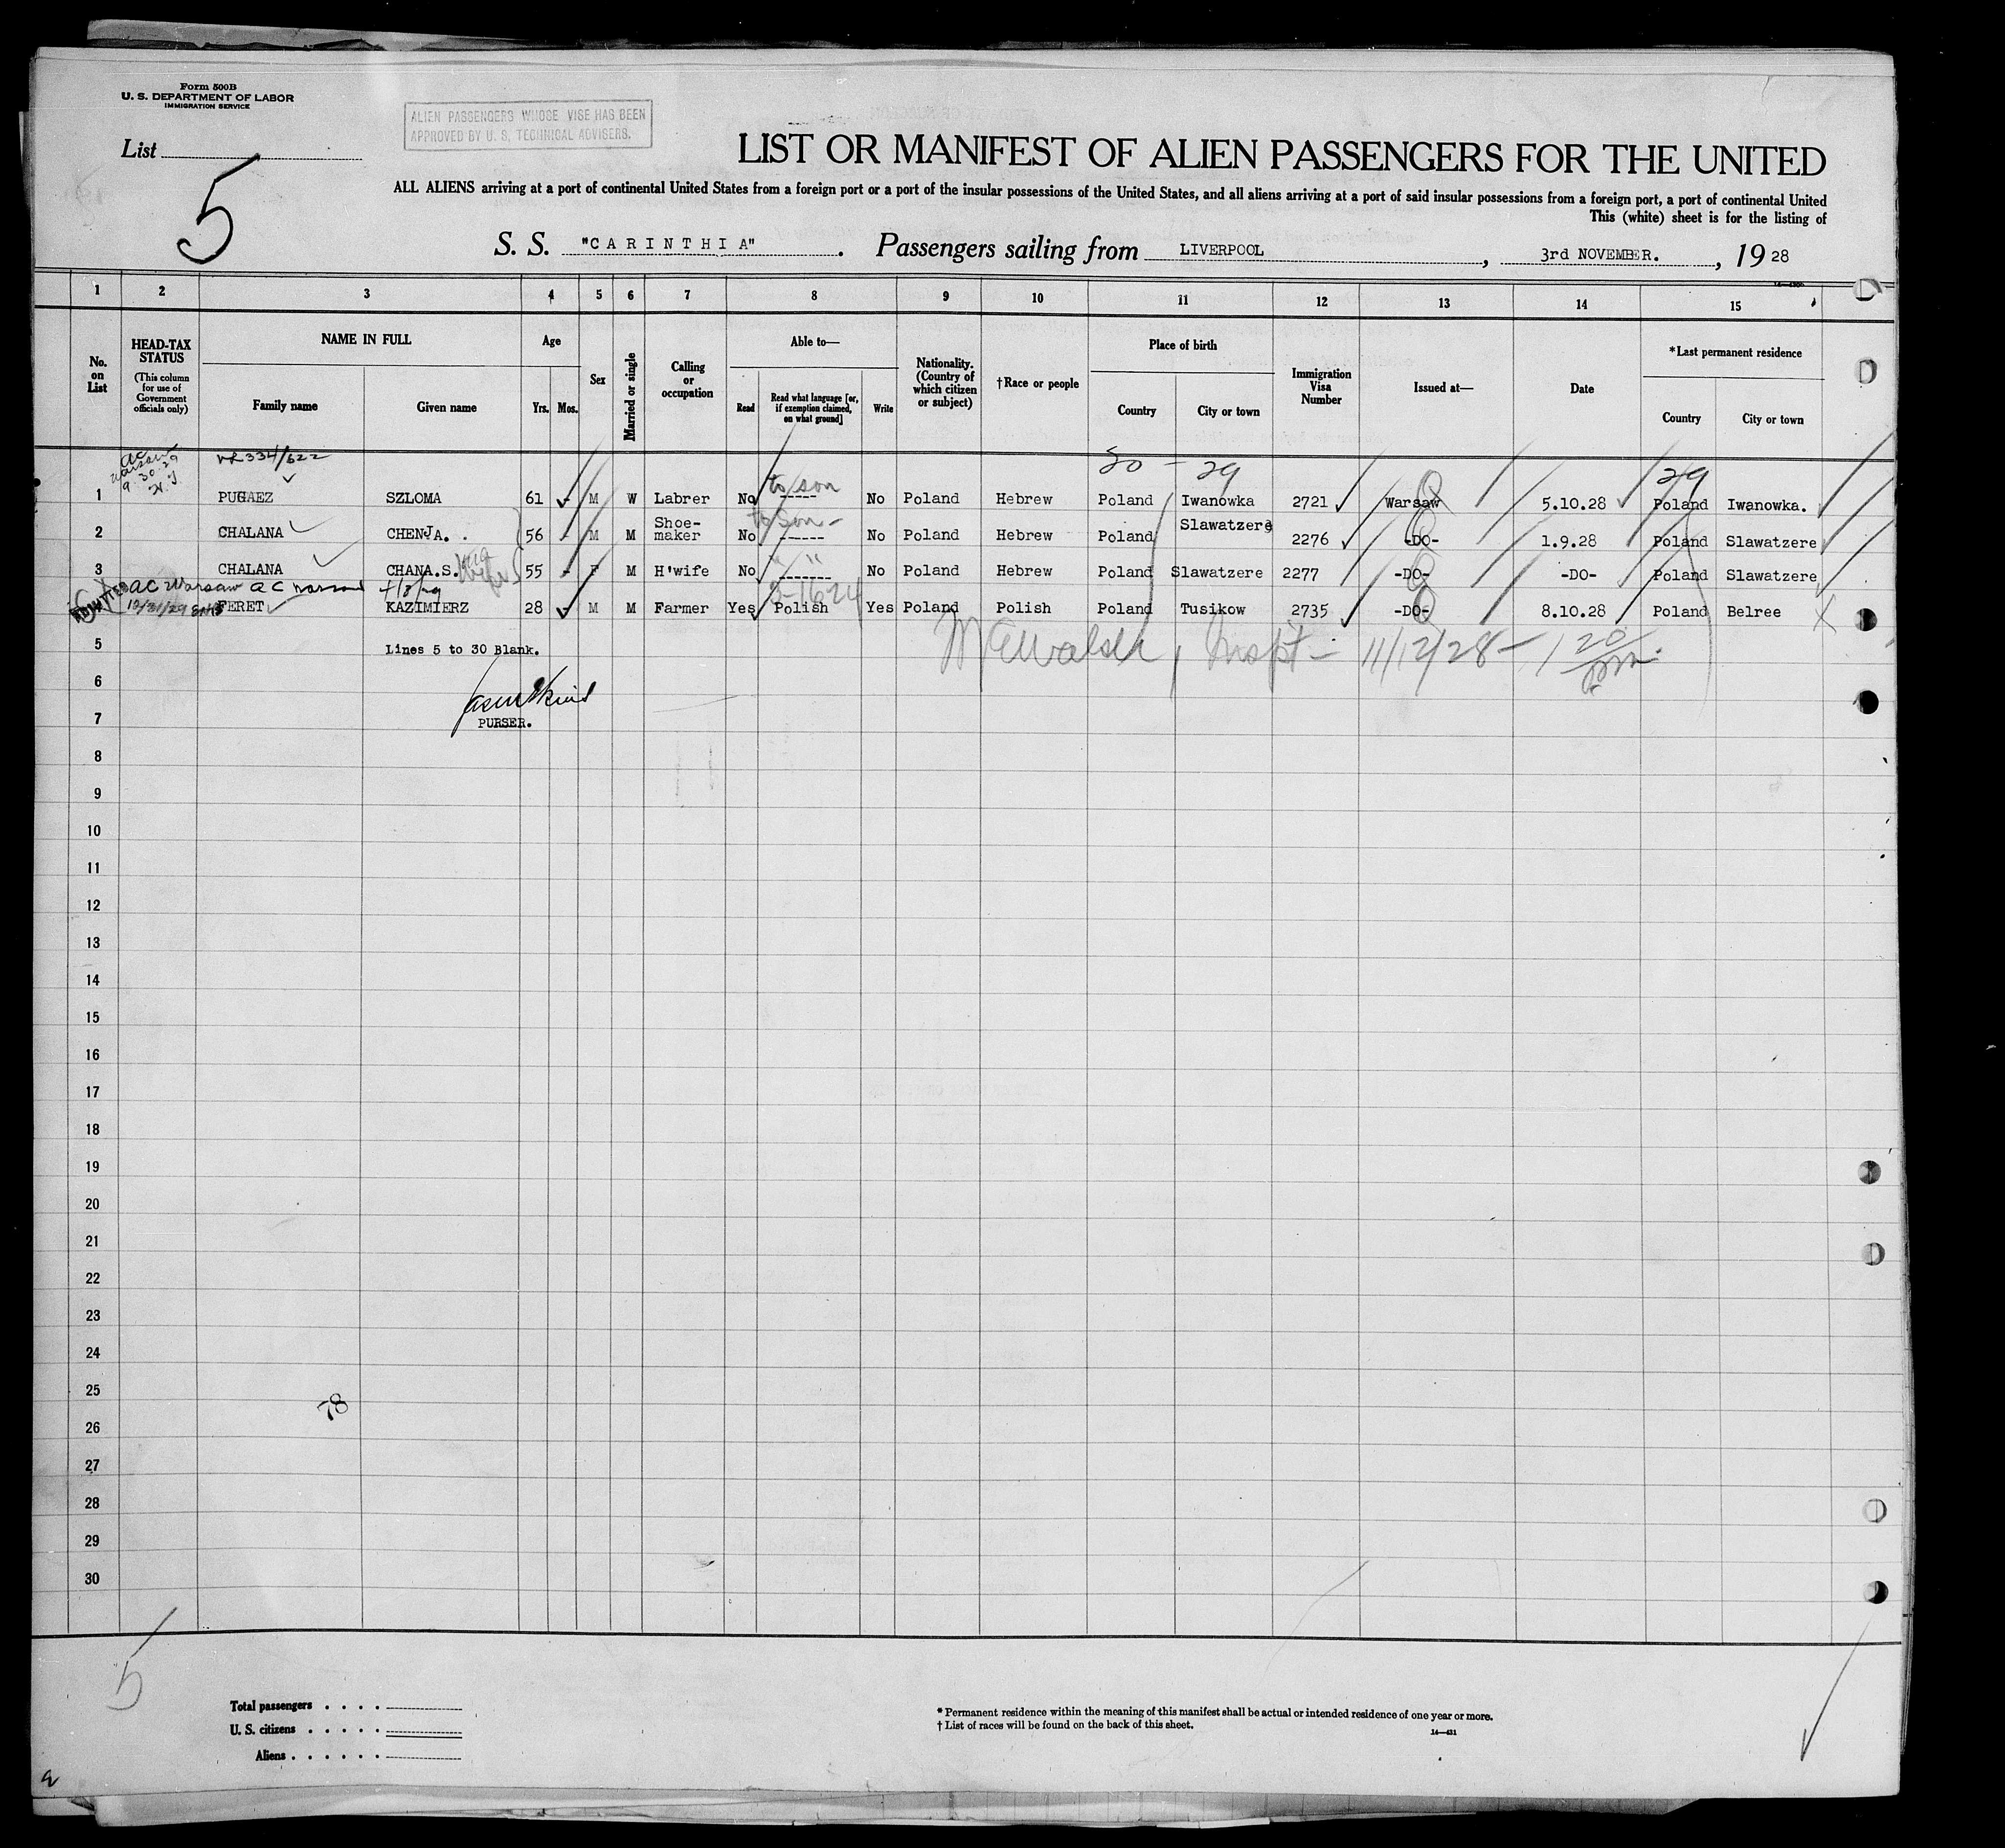 Form 500B
U. S. DEPARTMENT OF LABOR
IMMIGRATION SERVICE
ALIEN PASSENGERS WHOSE VISE HAS BEEN
APPROVED BY U. S. TECHNICAL ADVISERS.
List
5
LIST OR MANIFEST OF ALIEN PASSENGERS FOR THE UNITED
ALL ALIENS arriving at a port of continental United States from a foreign port or a port of the insular possessions of the United States, and all aliens arriving at a port of said insular possessions from a foreign port, a port of continental United
This (white) sheet is for the listing of
S. S. "CARINTHIA". Passengers sailing from LIVERPOOL, 3rd NOVEMBER., 1928
1 2 3 4 5 6 7 8 9 10 11 12 13 14 15
No. on List
HEAD-TAX STATUS
(This column for use of Government officials only)
NAME IN FULL
Family name Given name
Age
Yrs. Mos.
Sex
Married or single
Calling or occupation
Able to—
Read
Read what language [or, if exemption claimed, on what ground]
Write
Nationality. (Country of which citizen or subject)
†Race or people
Place of birth
Country City or town
Immigration Visa Number
Issued at—
Date
*Last permanent residence
Country City or town
29 29
to son
1 PUGAEZ SZLOMA 61 - M W Labrer No ----- No Poland Hebrew Poland Iwanowka 2721 Warsaw 5.10.28 Poland Iwanowka.
to son -
2 CHALANA CHENJA. 56 - M M Shoe-maker No ------ No Poland Hebrew Poland Slawatzere 2276 -DO- 1.9.28 Poland Slawatzere
wife
3 CHALANA CHANA.S. 55 - F M H'wife No ------- No Poland Hebrew Poland Slawatzere 2277 -DO- -DO- Poland Slawatzere
ac Warsaw ac Warsaw
10/31/29
FERET KAZIMIERZ 28 - M M Farmer Yes Polish Yes Poland Polish Poland Tusikow 2735 -DO- 8.10.28 Poland Belree X
5 Lines 5 to 30 Blank.
Inspt - 11/12/28 - 1 20 pm.
6
7 PURSER.
8
9
10
11
12
13
14
15
16
17
18
19
20
21
22
23
24
25
78
26
27
28
29
30
5
Total passengers . . . .
U. S. citizens . . . . .
Aliens . . . . . .
* Permanent residence within the meaning of this manifest shall be actual or intended residence of one year or more.
† List of races will be found on the back of this sheet.
14—431